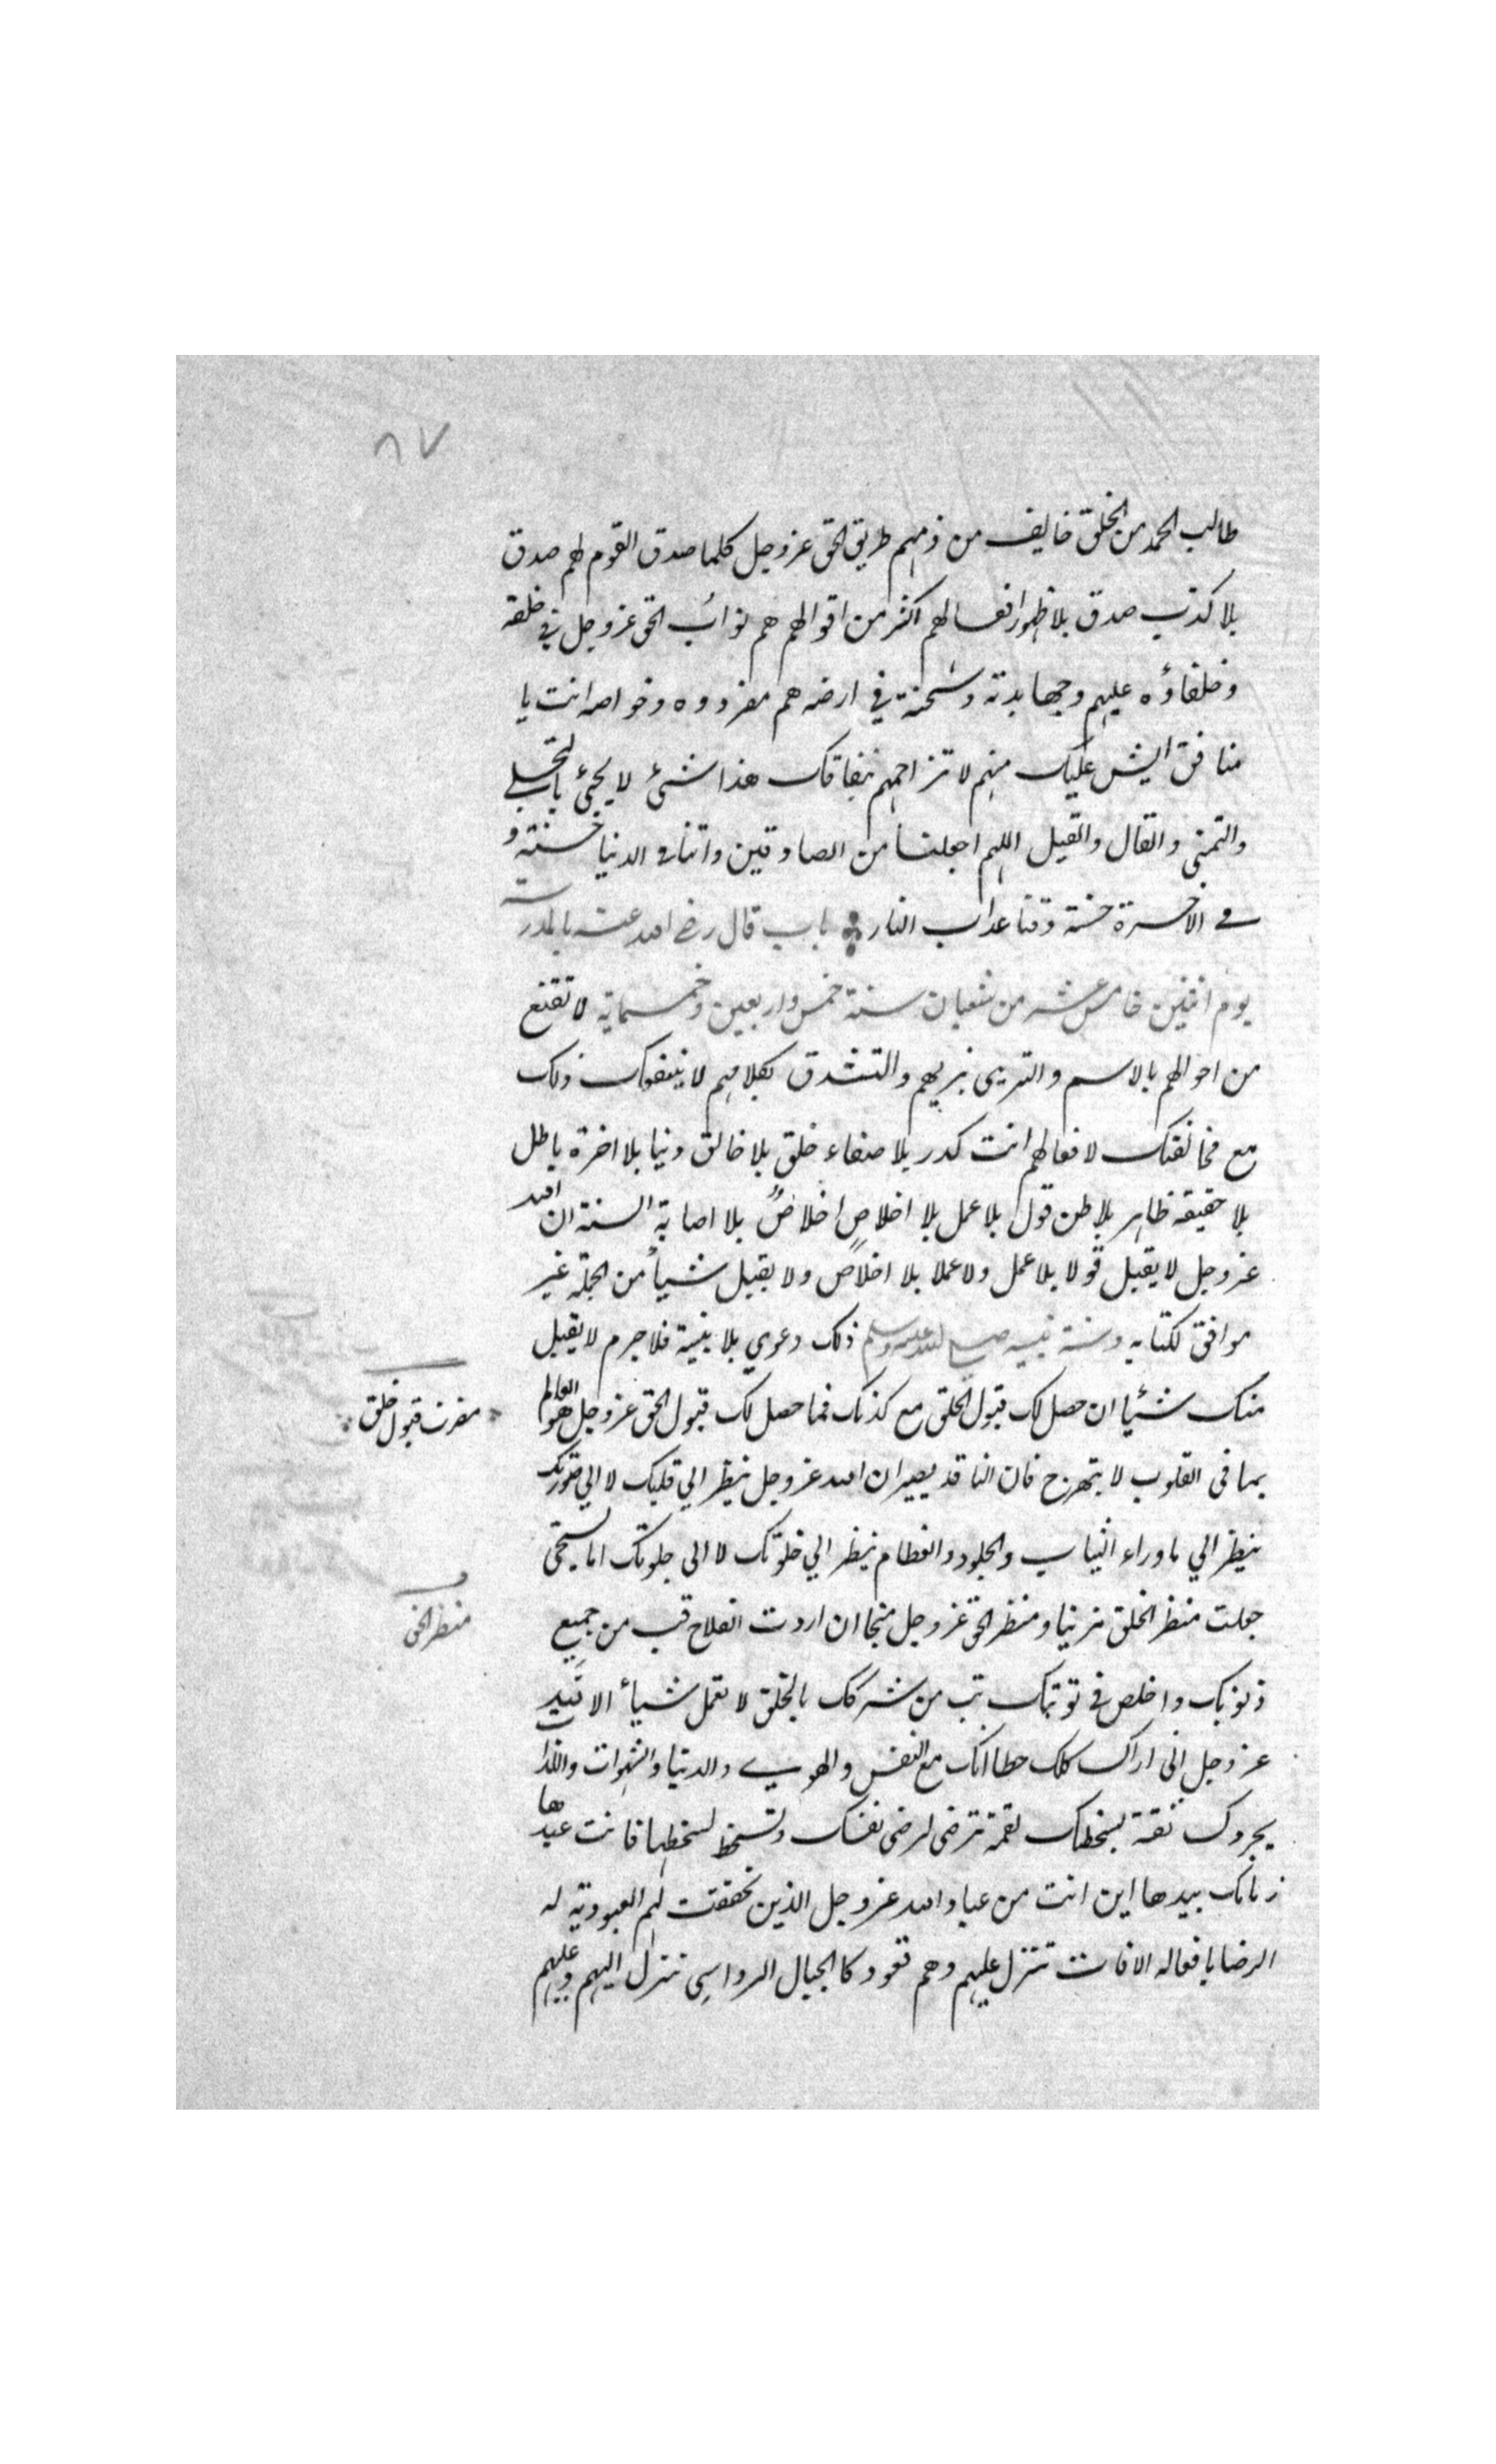 ٨٧
طالب الحمد من الخلق خايف من ذمهم طريق الحق عز وجل كلما صدق القوم لهم صدق
بلا كذب صدق بلا ظهور افعالهم اكثر من اقوالهم هم نوائب الحق عز وجل في خلقه
وخلفاؤه عليهم وجهابدته وشحنة في ارضه هم مفردوه وخواصه انت يا
منافق ايش عليك منهم لا تزاحمهم بنفاقك هذا شئ لا يجئ بالتحلي
والتمني والقال والقيل اللهم اجعلنا من الصادقين واتنا في الدنيا حسنة و
في الاخرة حسنة وقنا عذاب النار باب قال رضي الله عنه بالمدرسة
يوم اثنين خامس عشر من شعبان سنة خمس واربعين وخمسماية لا تقنع
من احوالهم بالاسم والتزيي بزيهم والتشدق بكلامهم لا ينفعك ذلك
مع مخالفتك لافعالهم انت كدر بلا صفاء خلق بلا خالق دنيا بلا اخرة باطل
بلا حقيقة ظاهر بلا باطن قول بلا عمل بلا اخلاص اخلاص بلا اصابة السنة ان الله
عز وجل لا يقبل قولا بلا عمل ولا عملا بلا اخلاص ولا يقبل شيأ من الجملة غير
موافق لكتابه وسنة نبيه صلى الله عليه وسلم ذلك دعوي بلا بينة فلا جرم لا يقبل
منك شئيا ان حصل لك قبول الخلق مع كذبك فما حصل لك قبول الحق عز وجل هو العالم
بما في القلوب لا تبهرج فان الناقد بصير ان الله عز وجل ينظر الي قلبك لا الي صورتك
ينظر الي ما وراء الثياب والجلود والعظام ينظر الي خلوتك لا الى جلوتك اما يستحي
جعلت منظر الخلق مزينا ومنظر الحق عز وجل منجا ان اردت الفلاح فتب من جميع
ذنوبك واخلص في توبتك تب من شركك بالخلق لا تعمل شيأ الا
عز وجل اني اراك كلك خطا لانك مع النفس والهوي والدنيا والشهوات واللذات
يحردك بقة يسخطك لقمة ترضى لرضى نفسك وتسخط لسخطها فانت عبدها
زمامك بيدها اين انت من عباد الله عز وجل الذين تحققت لهم العبودية له
الرضا بافعاله الافات تتنزل عليهم وهم قعود كالجبال الرواسي تنزل اليهم وعليهم
مضرت قبول خلق
منظر الحق